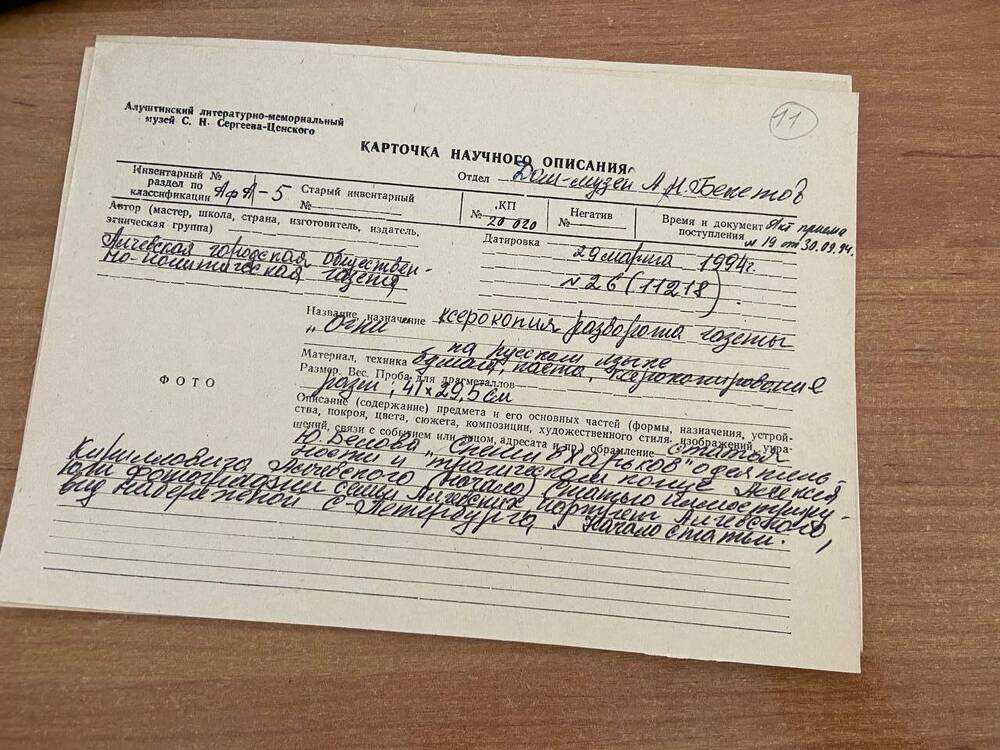 11
Алуштинский литературно-мемориальный
музей С. Н. Сергеева-Ценского
КАРТОЧКА НАУЧНОГО ОПИСАНИЯ
Отдел Дом-музей А.Н. Бекетов
Инвентарный №
раздел по
классификации АфА-5
Старый инвентарный
№
КП
№ 20 020
Негатив
№
Время и документ
поступления
Акт приема
№ 19 от 30.09.94.
Автор (мастер, школа, страна, изготовитель, издатель,
этническая группа)
Алчевская городская обществен-
но-политическая газета
Датировка
29 марта 1994г.
№ 26 (11218)
Название, назначение ксерокопия разворота газеты
„Огни"
на русском языке
Материал, техника бумага, паста, ксерокопирование
Размер. Вес. Проба для драгметаллов
разм., 41 × 29,5 см
ФОТО
Описание (содержание) предмета и его основных частей (формы, назначения, устрой-
ства, покроя, цвета, сюжета, композиции, художественного стиля, изображений, укра-
шений, связи с событием или лицом, адресата и пр.) обрамление статья
Ю. Белова „ Харьков" о деятель-
ности и трагическом конце Алексея
Кирилловича Алчевского (начало) Статью иллюстриру-
ют фотографии семьи Алчевских портрет Алчевского,
вид набережной С-Петербурга, начало статьи.